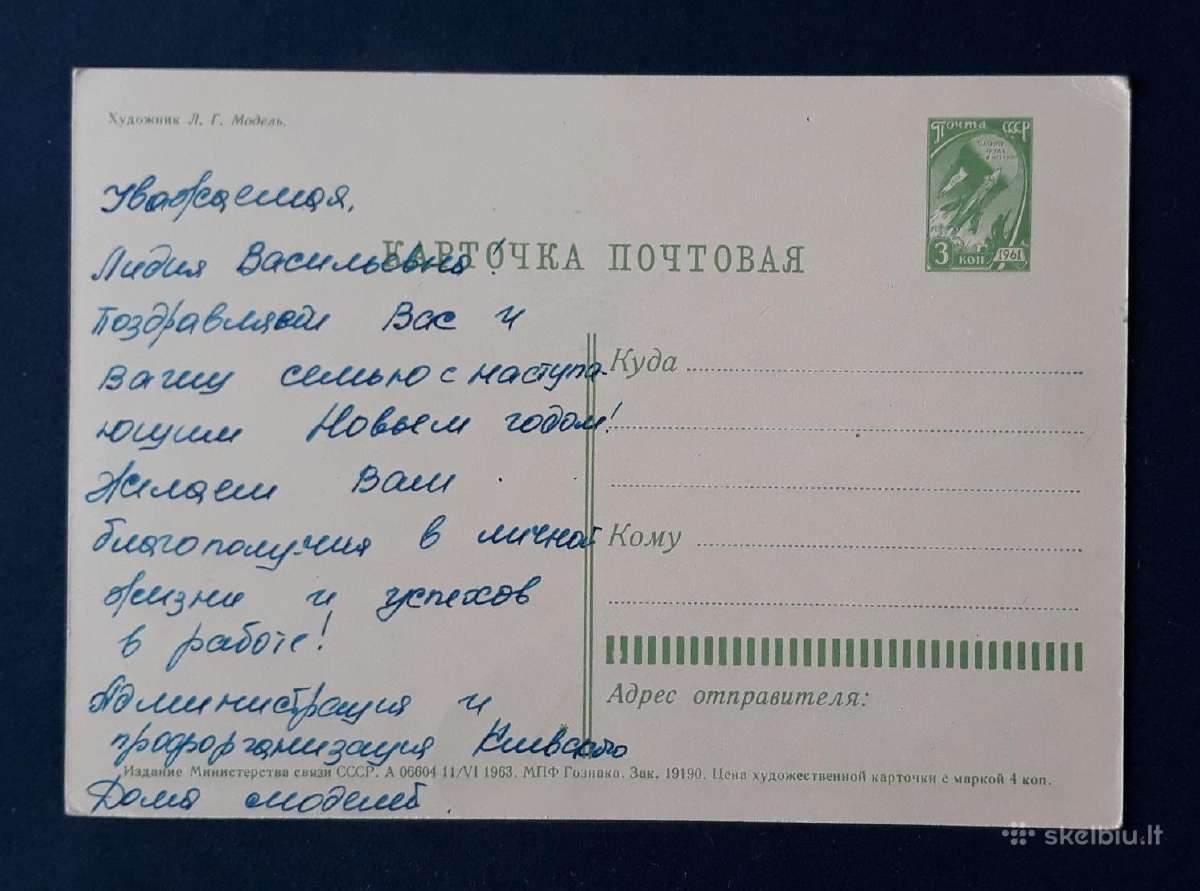 Художник Л. Г. Модель.
Почта СССР
3 коп. 1961
Уважаемая,
КАРТОЧКА ПОЧТОВАЯ
Лидия Васильевна!
Поздравляем Вас и
Вашу семью с наступа-
ющим Новым годом!
Желаем Вам
благополучия в личной
жизни и успехов
в работе!
Администрация и
профорганизация Киевского
Дома моделей.
Куда
Кому
Адрес отправителя:
Издание Министерства связи СССР. А 06604 11/VI 1963. МПФ Гознака. Зак. 19190. Цена художественной карточки с маркой 4 коп.
skelbiu.lt